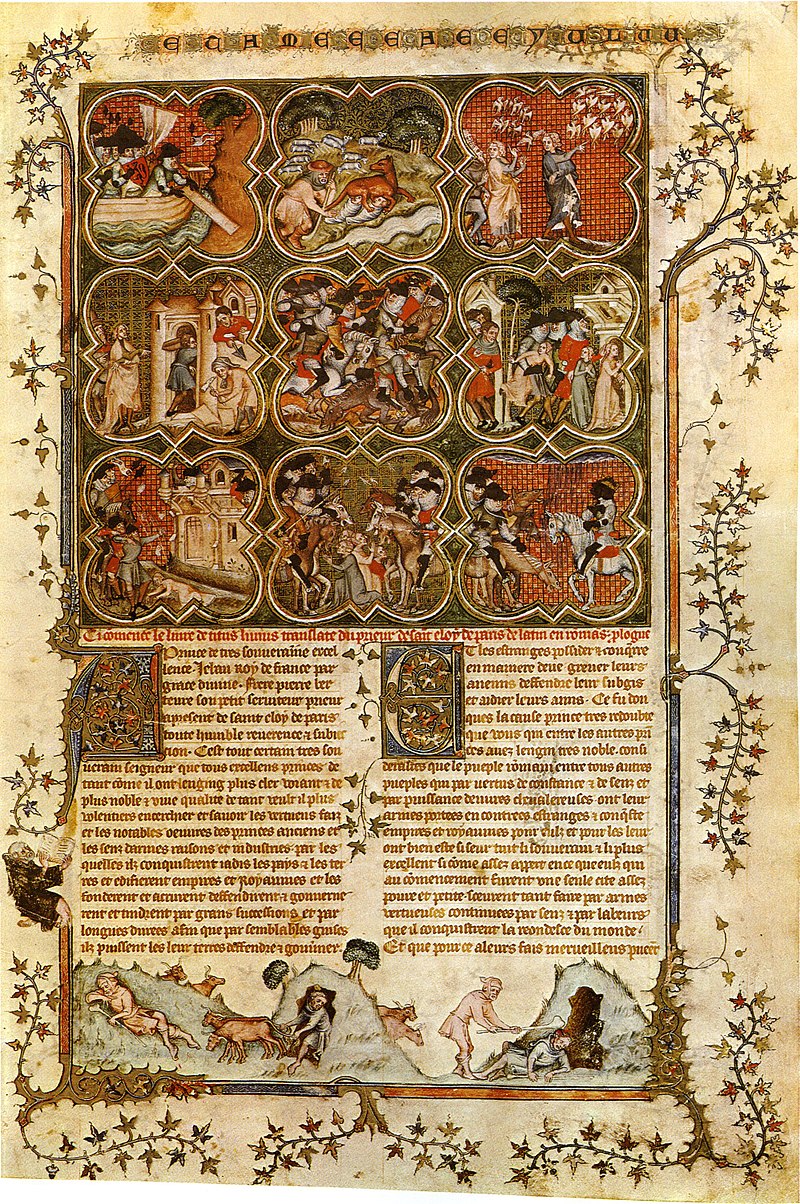 Ci comence le liure de titus liuius translate du prieur de saīt eloy de paris de latin en romās . plogue
A Prince de tres souueraine excel
lence . Jehan roy de france par
grace diuine . frere pierre ber
ceure son petit seruiteur prieur
a present de saint eloy de paris
toute humble reuerence & subiec
tion . Cest tout certain tres sou
uerain seigneur que tous excellens princes de
tant come il ont lenging plus cler voiant & de
plus noble & viue qualite de tant veult il plus
volentiers encerchier et sauoir les vertueus faiz
et les notables oeuures des princes anciens et
les senz darmes raisons et industries par les
quelles ilz conquistrent iadis les pays & les ter
res et edifierent empires et Royaumes et les
fonderent et acturent deffendirent & gouuerne
rent et tindrent par grans successions et par
longues durees afin que par semblables guises
ilz puissent les leur terres deffendre & gouūner .
Et les estranges possider & conqrre
en maniere deue greuer leurs
anemis deffendre leur subgis
et aidier leurs amis . Ce fu don
ques la cause prince tres redoubte
que vous qui entre les autres prī
ces auez lengin tres noble . consi
derastes que le pueple rōmain entre tous autres
pueples qui par vertus de constance & de senz et
par puissance deuures cheualereuses ont leur
armes portees en contrees estranges & conqste
empires et royaumes pour eulz et pour les leur
ont bien este si seur tuit li souuerain & li plus
excellent si come assez appert en ce que eulz qui
au cōmencement furent vne seule cite assez
poure et petite . sceurent tant faire par armes
vertueuses continuees par senz & par labeurs
que il conquistrent la reondesce du monde .
Et que pour ce aleurs fais merueilleus puent